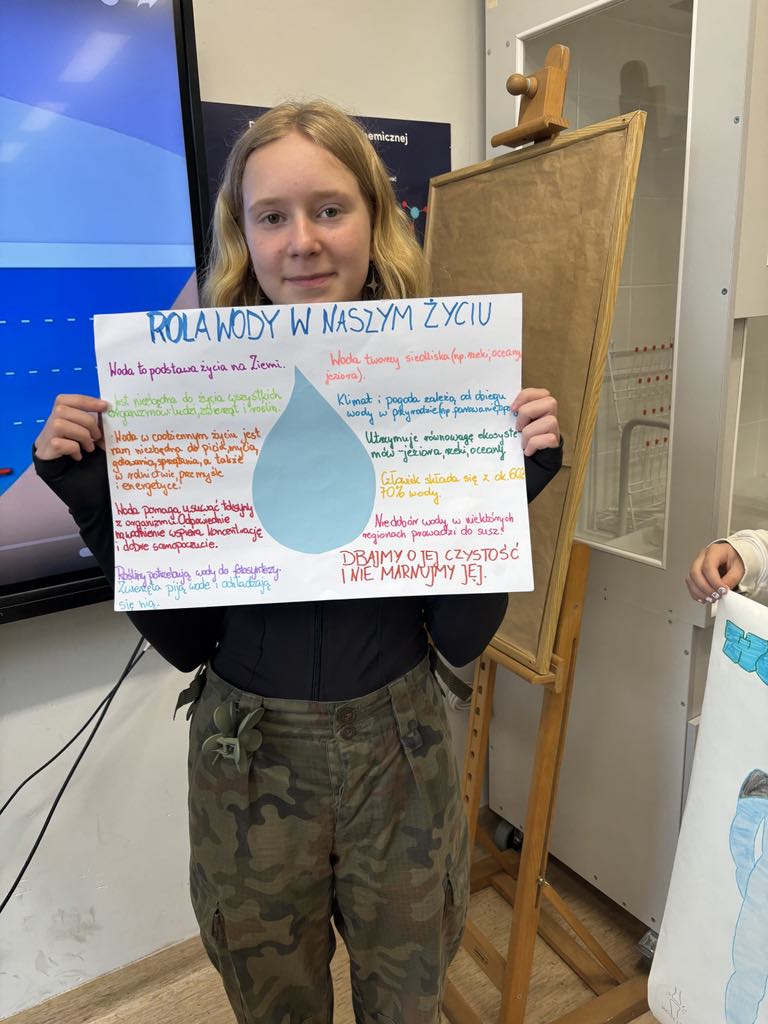 emicznej
ROLA WODY W NASZYM ŻYCIU
Woda to podstawa życia na Ziemi.
Jest niezbędna do życia wszystkich
organizmów: ludzi, zwierząt i roślin.
Woda w codziennym życiu jest
nam niezbędna do picia, mycia,
gotowania, sprzątania, a także
w rolnictwie, przemyśle
i energetyce!
Woda pomaga usuwać toksyny
z organizmu. Odpowiednie
nawodnienie wspiera koncentrację
i dobre samopoczucie.
Rośliny potrzebują wody do fotosyntezy.
Zwierzęta piją wodę i ochładzają
się nią.
Woda tworzy siedliska (np. rzeki, oceany,
jeziora).
Klimat i pogoda zależą od obiegu
wody w przyrodzie (np. parowanie,
Utrzymuje równowagę ekosyste-
mów - jeziora, rzeki, oceany
Człowiek składa się z ok. 60%
70% wody.
Niedobór wody w niektórych
regionach prowadzi do susz!
DBAJMY O JEJ CZYSTOŚĆ
I NIE MARNUJMY JEJ.